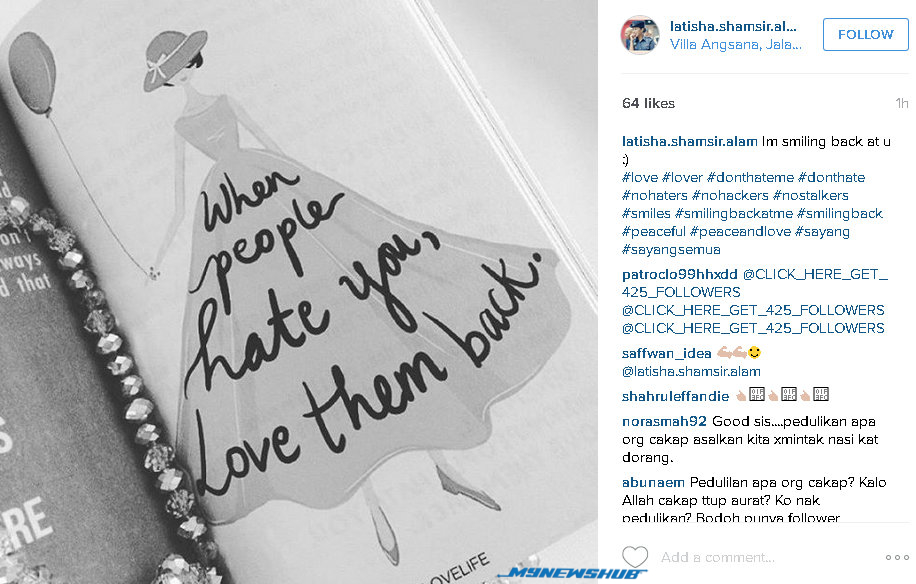 When
people
hate you,
Love them back.
OVELIFE
on't
ways
d that
S
RE
MYNEWSHUB
latisha.shamsir.al...
Villa Angsana, Jala...
FOLLOW
64 likes
1h
latisha.shamsir.alam Im smiling back at u
:)
#love #lover #donthateme #donthate
#nohaters #nohackers #nostalkers
#smiles #smilingbackatme #smilingback
#peaceful #peaceandlove #sayang
#sayangsemua
patroclo99hhxdd @CLICK_HERE_GET_
425_FOLLOWERS
@CLICK_HERE_GET_425_FOLLOWERS
@CLICK_HERE_GET_425_FOLLOWERS
saffwan_idea 💪🏼💪🏼😃
@latisha.shamsir.alam
shahruleffandie
norasmah92 Good sis....pedulikan apa
org cakap asalkan kita xmintak nasi kat
dorang.
abunaem Pedulilan apa org cakap? Kalo
Allah cakap ttup aurat? Ko nak
pedulikan? Bodoh punya follower
Add a comment...